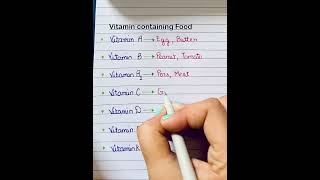 Vitamin containing Food
Vitamin A → Egg, Butter
Vitamin B → Peanut, Tomato
Vitamin B₁ → Peas, Meat
Vitamin C → G
Vitamin D →
Vitamin
Vitamin K